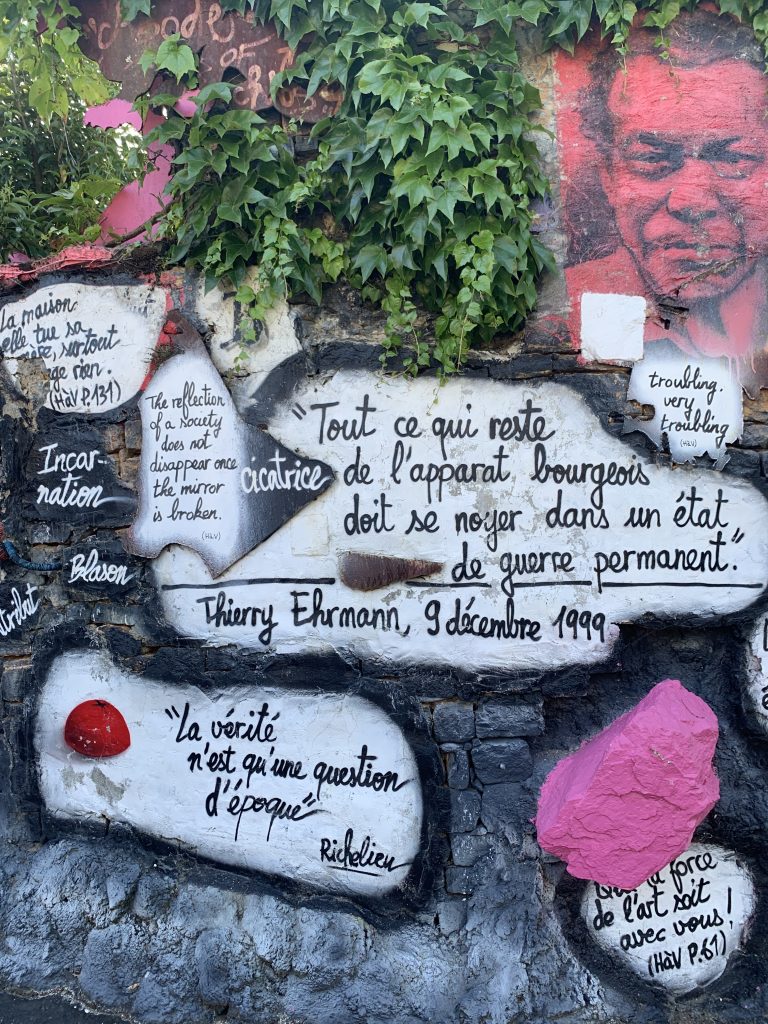 La maison
elle tue sa
surtout
rien.
(HàV P.131)
The reflection
of a society
does not
disappear once
the mirror
is broken.
(HàV)
cicatrice
"Tout ce qui reste
de l'apparat bourgeois
doit se noyer dans un état
de guerre permanent."
Thierry Ehrmann, 9 décembre 1999
troubling.
very
troubling
(HàV)
Incar-
nation
Blason
"La vérité
n'est qu'une question
d'époque"
Richelieu
force
de l'art soit
avec vous!
(HàV P.61)